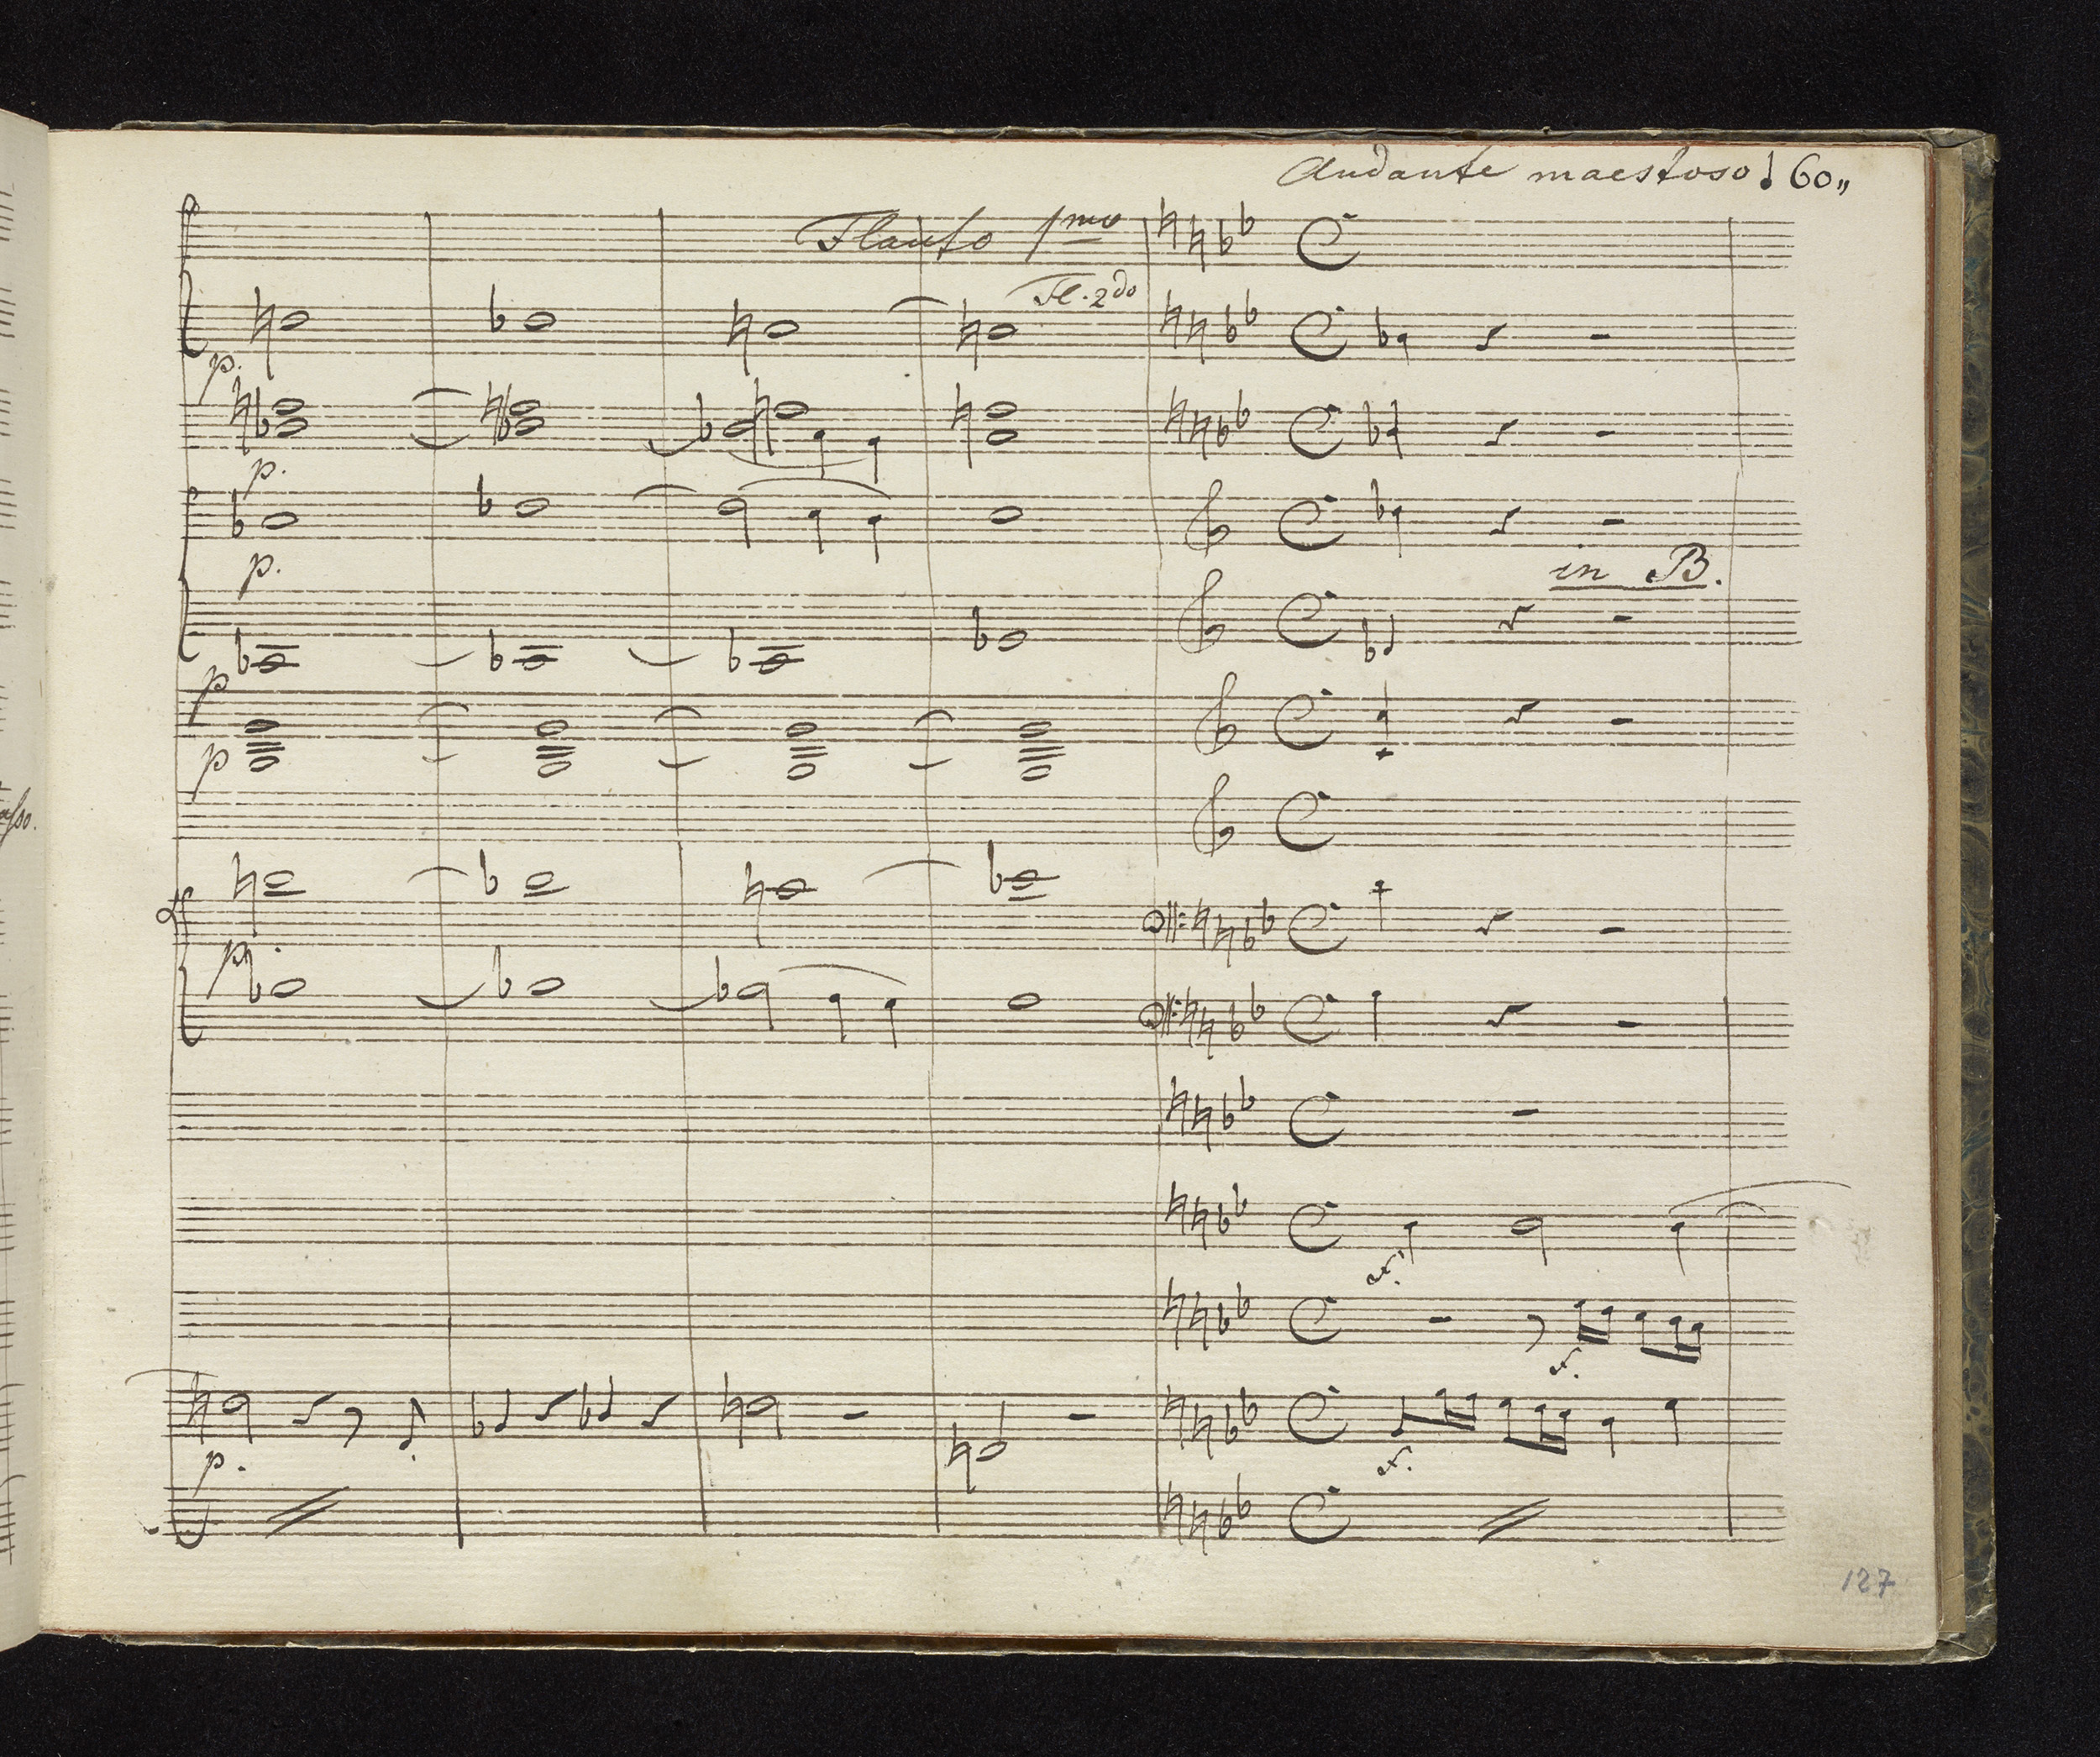 Andante maestoso ♩ 60„
Flauto 1mo
Fl. 2do
p.
p.
p.
in B.
p
p
p.
f.
f.
p.
f.
127